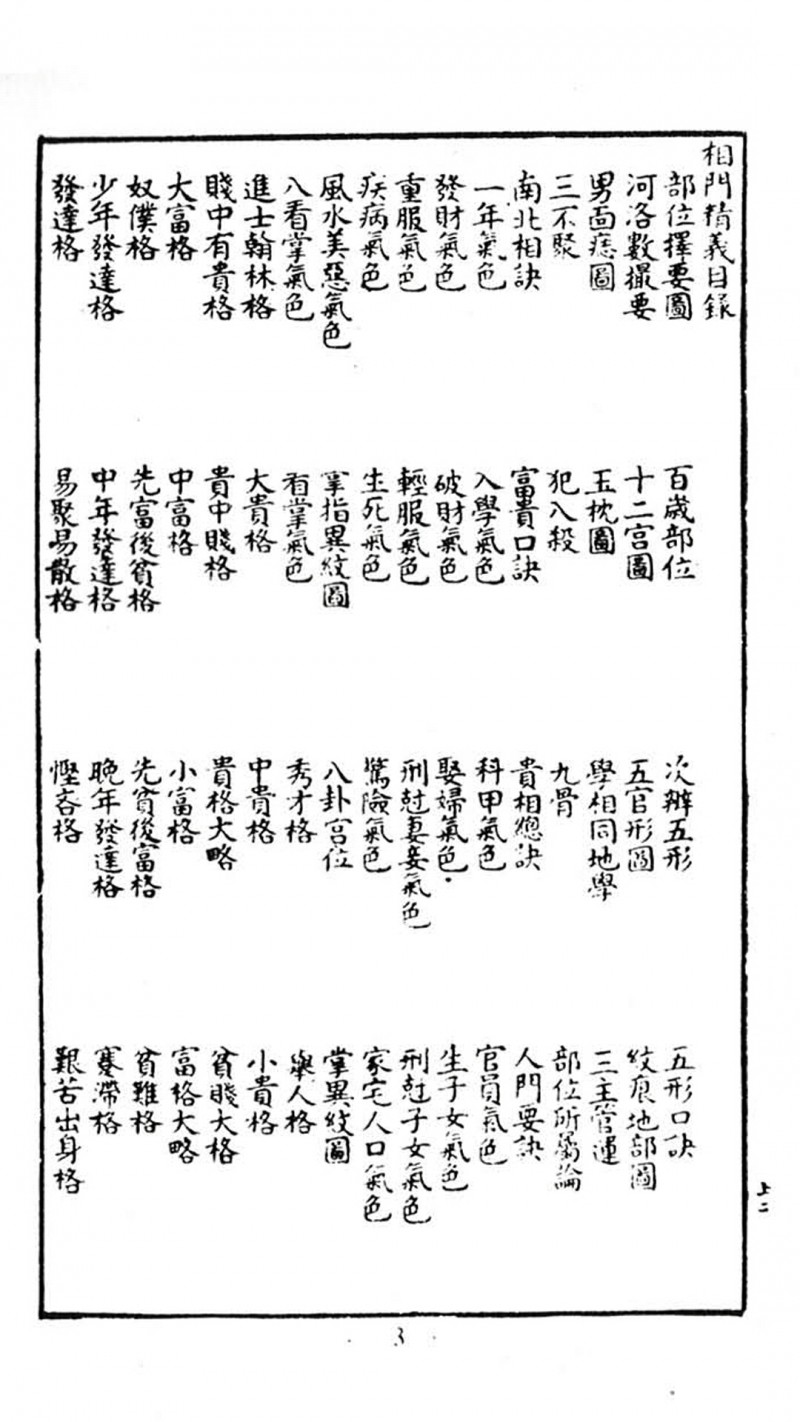 相門精義目錄
部位擇要圖 百歲部位 次辨五形 五形口訣
河洛數撮要 十二宮圖 五官形圖 紋痕地部圖
男面痣圖 玉枕圖 學相同地學 三主管運
三不聚 犯入殺 九骨 部位所屬論
南北相訣 富貴口訣 貴相總訣 人門要訣
一年氣色 入學氣色 科甲氣色 官員氣色
發財氣色 破財氣色 娶婦氣色 生子女氣色
重服氣色 輕服氣色 刑尅妻妾氣色 刑尅子女氣色
疾病氣色 生死氣色 驚險氣色 家宅人口氣色
風水美惡氣色 掌指異紋圖 八卦宮位 掌異紋圖
八看掌氣色 看掌氣色 秀才格 舉人格
進士翰林格 大貴格 中貴格 小貴格
賤中有貴格 貴中賤格 貴格大略 貧賤大格
大富格 中富格 小富格 富格大略
奴僕格 先富後貧格 先貧後富格 貧難格
少年發達格 中年發達格 晚年發達格 蹇滯格
發達格 易聚易散格 慳吝格 艱苦出身格
上二
3